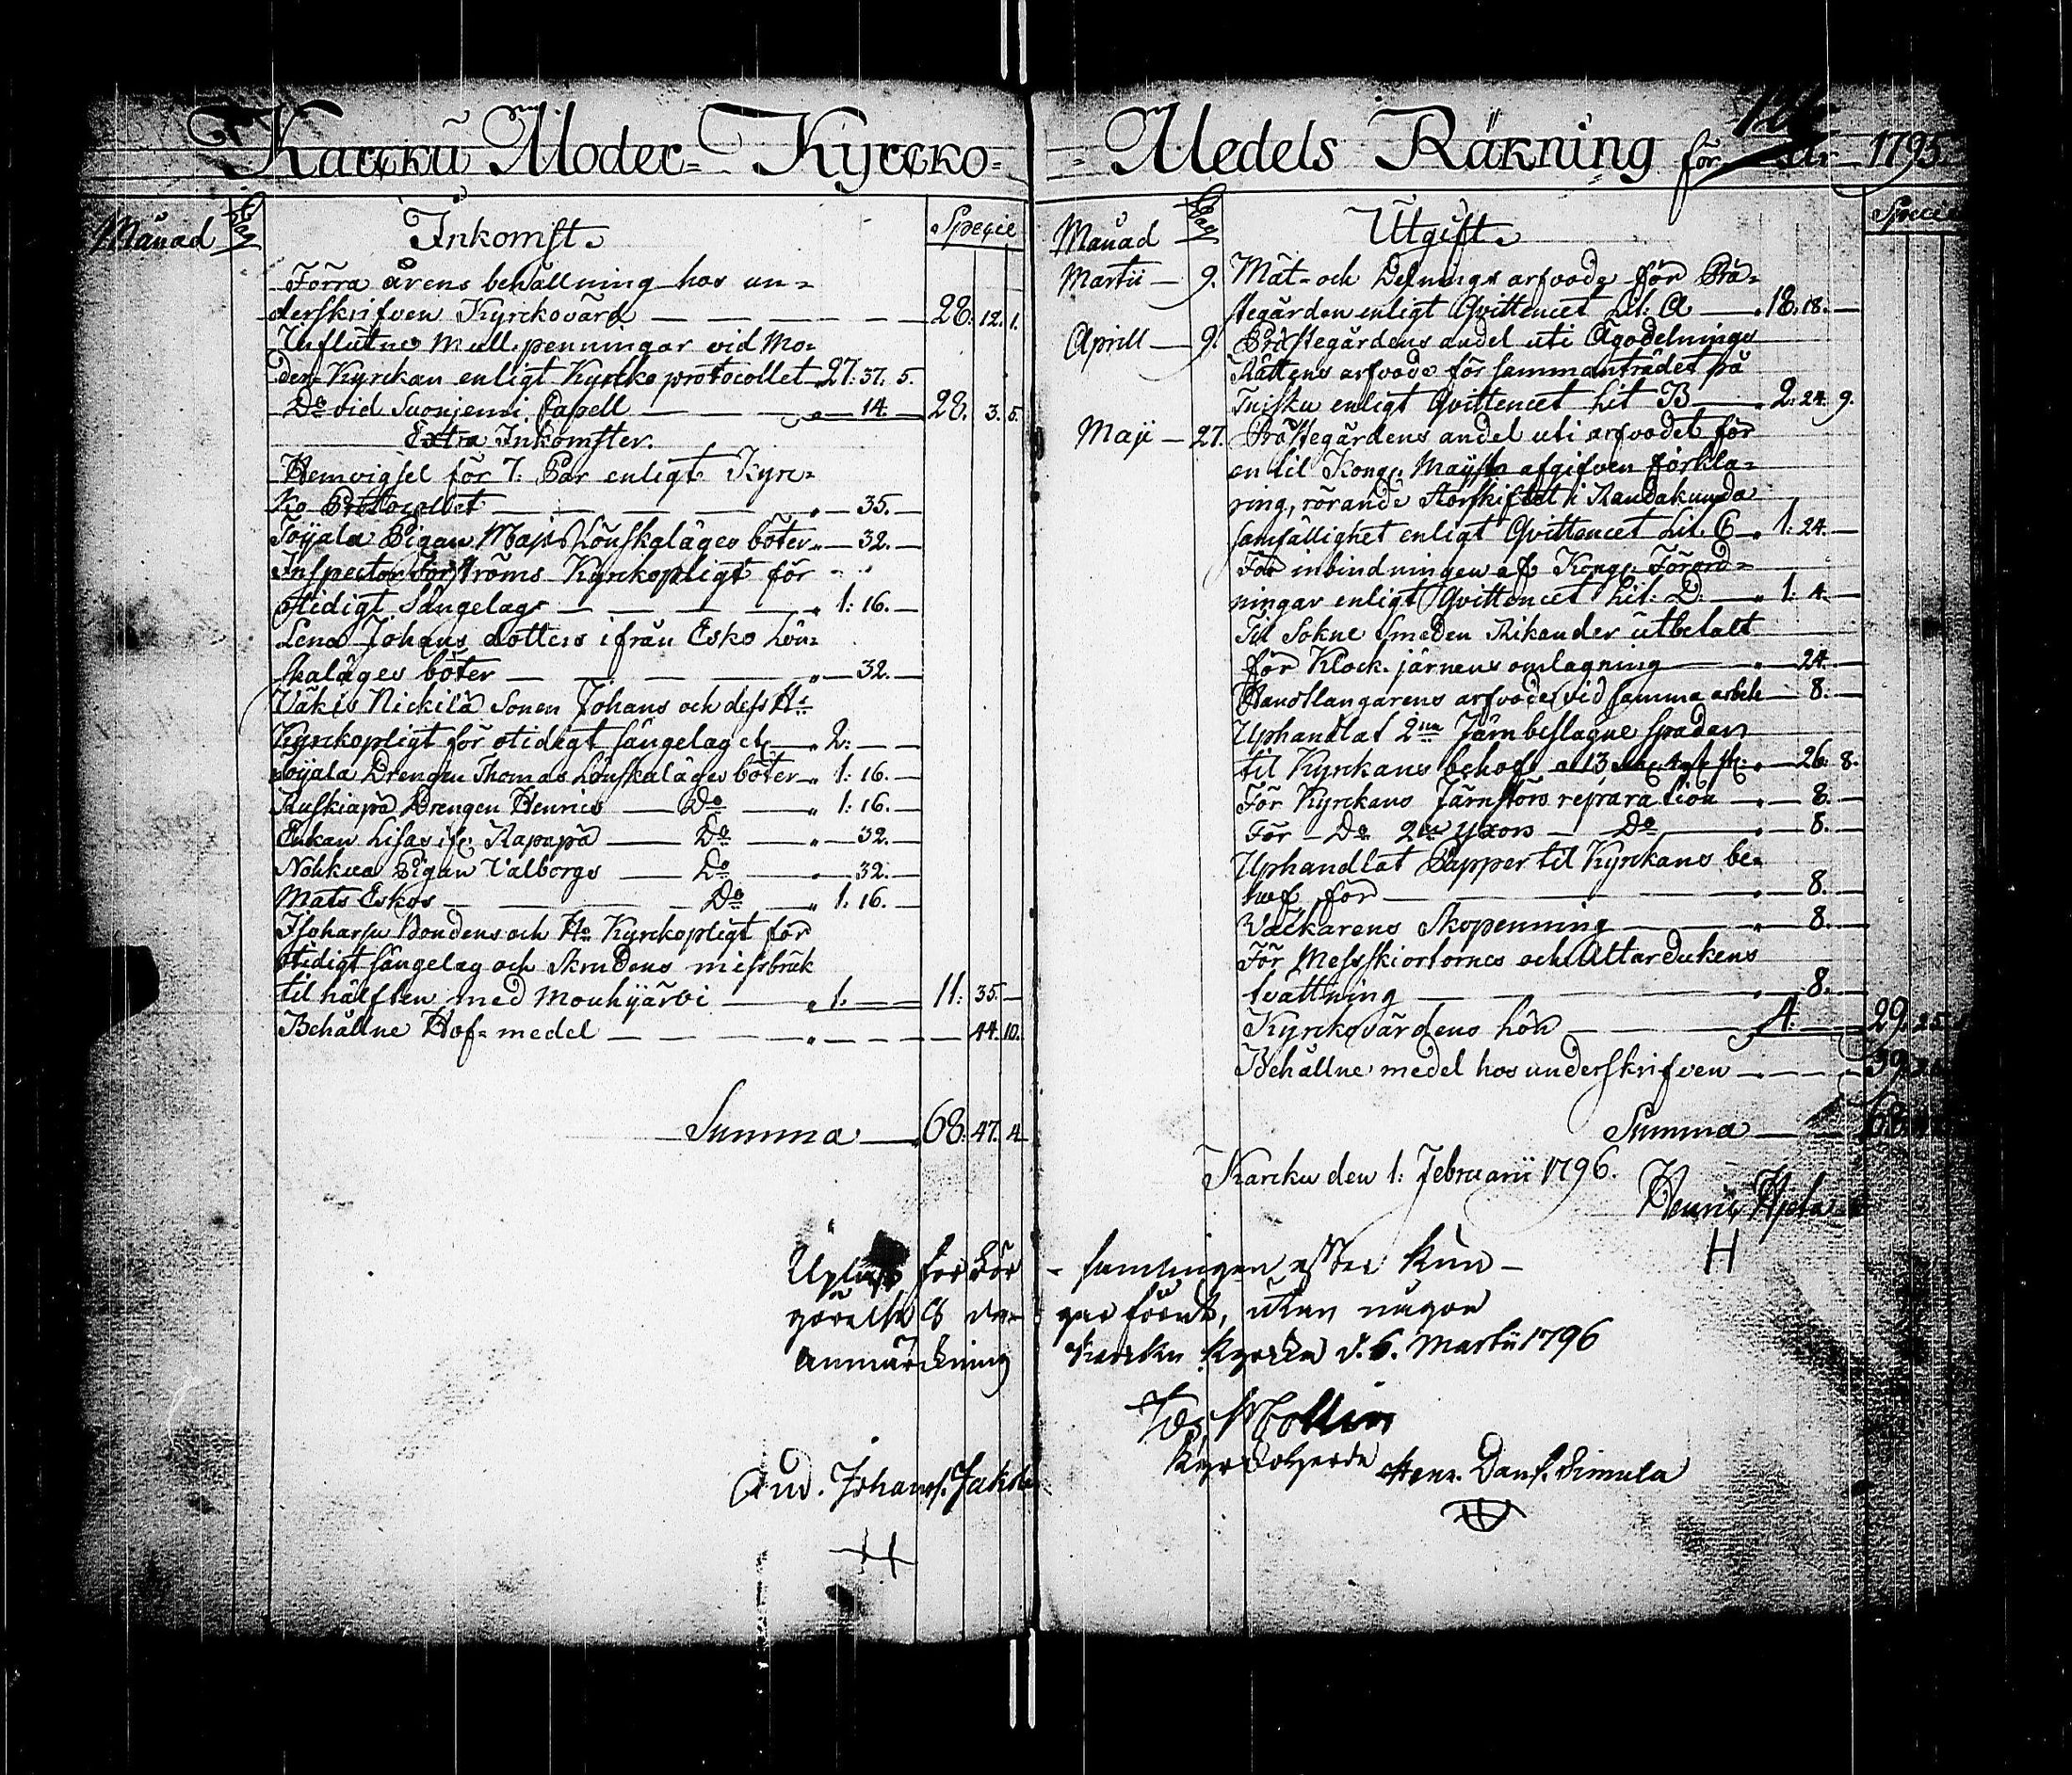 Karcku Moder-Kyrcko-
Månad Dag Inkomst. Specie
Förra årens behållning hos un-
derskrifven Kyrckovärd — — — — 28. 12. 1.
Influtne Mull penningar vid Mo-
der-Kyrckan enligt Kyrko protocollet 27. 37. 5.
Do vid Suonjemi Capell — — 14. — 28. 3. 5.
Extra Inkomster.
Hemvigsel för 7. Par enligt Kyrc-
ko Protocollet — — — — 35. —
Pigan Majs Lönskaläges böter — 32. —
Inspector Kyrckopligt för
otidigt Sängelag — — — — 1: 16. —
Lena Johans dotters ifrån Esko Lön-
skaläges böter — — — — 32. —
Väkis Nickilä Sonen Johans och dess Hs
Kyrckopligt för otidigt sängelag — 2: — —
Drengen Thomas Lönskaläges böter — 1: 16. —
Drengen Henrics — Do — 1: 16. —
Enkan Lisas Rapapä — Do — 32. —
Pigan Valborgs — Do — 32. —
Mats Eskos — — — Do — 1: 16. —
Bondens och Hs Kyrckopligt för
otidigt sängelag och Skrudens missbruk
til hälften med Mouhijärvi — 1. — — 11: 35. —
Behållne Hof-medel — — — — — — — 44. 10.
Summa — 68. 47. 4
Medels Räkning för år 1795.
Månad Dag Utgift. Specie
Martii — 9. Mät- och Delnings arfvode för Prä-
stegården enligt Qvittencet Lit: A — 18. 18. —
Aprill — 9. Prästegårdens andel uti Ägodelnings
Rättens arfvode för sammanträdet på
enligt Qvittencet Lit B — 2: 24. 9.
Maji — 27. Prästegårdens andel uti arfvodet för
en til Kongl. Majst. afgifven förkla-
ring, rörande Storskiftet i
samfällighet enligt Qvittencet Lit. C — 1: 24. —
För inbindningen af Kongl. Förord-
ningar enligt Qvittencet Lit: D. — 1: 4. —
Til Sokne Smeden Rikander utbetalt
för Klock-järnens omlagning — — 24. —
Handtlangarens arfvode vid samma arbete — 8. —
Uphandlat 2ne Järnbeslagne spadar
til Kyrckans behof — 26. 8.
För Kyrckans Järnstörs reparation — — 8. —
För — Do 2ne yxors — Do — 8. —
Uphandlat Papper til Kyrckans be-
hof för — — — 8. —
Väckarens Skopenning — — 8. —
För Messskiortornes och Altardukens
tvättning — — — 8. —
Kyrckovärdens Lön — — 4. — — 29. 25.
Behållne medel hos underskrifven — — — 39.
Summa — —
Karcku den 1: Februarii 1796.
Henric
H
för för-samlingen efter kun-
görelse utan någon
anmärckning Karcku Kyrcka d. 6. Martii 1796
Mollin
Kyrckoherde
And. Johans. Henr. Dans. Simula